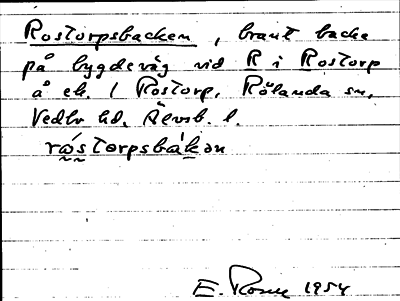 Rostorpsbacken, brant backe
på bygdeväg vid R i Rostorp
å ek. 1 Rostorp, Rölanda sn,
Vedbo hd. Älvsb. l.
råstorpsbakən
E. Rosell 1954